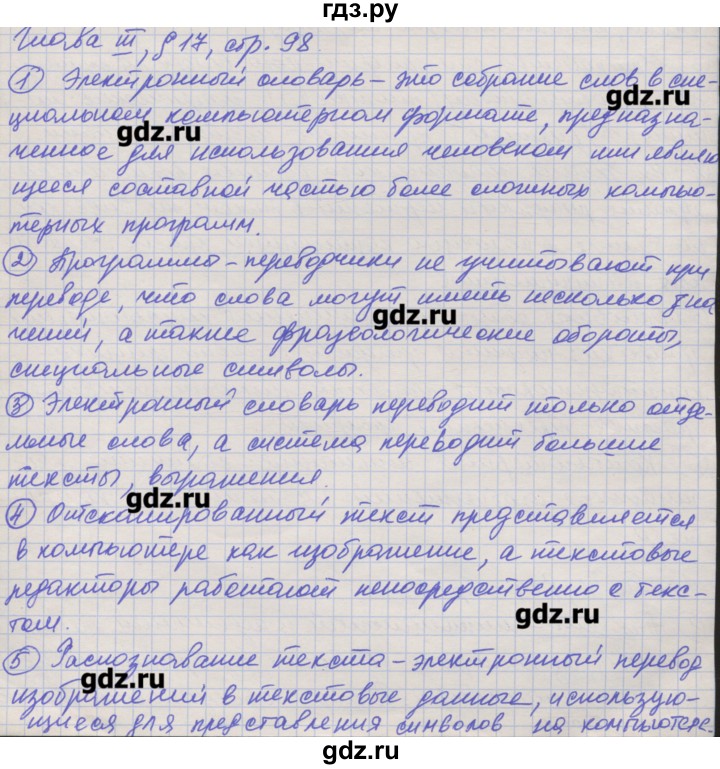 гдз.ру
Глава III, §17, стр. 98.
① Электронный словарь – это собрание слов в спе-
циальном компьютерном формате, предназна-
ченное для использования человеком или являю
щееся составной частью более сложных компью-
терных программ.
② Программы-переводчики не учитывают при
переводе, что слова могут иметь несколько зна
чений, а также фразеологические обороты,
специальные символы.
③ Электронный словарь переводит только отде-
льные слова, а система переводит большие
тексты, выражения.
④ Отсканированный текст представляется
в компьютере как изображение, а текстовые
редакторы работают непосредственно с текс-
том.
⑤ Распознавание текста – электронный перевод
изображений в текстовые данные, использую-
щиеся для представления символов на компьютере.
gdz.ru
gdz.ru
gdz.ru
gdz.ru
gdz.ru
gdz.ru
gdz.ru